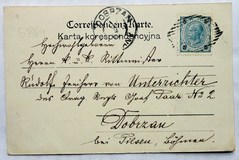 Correspondenz-Karte.
Karta korespondencyjna
Hochwohlgeboren
Herrn K. u. K. Rittmeister
Rudolf Freiherr von Unterrichter
des Drag. Regts No 2
Dobrzan
bei Pilsen, Böhmen.